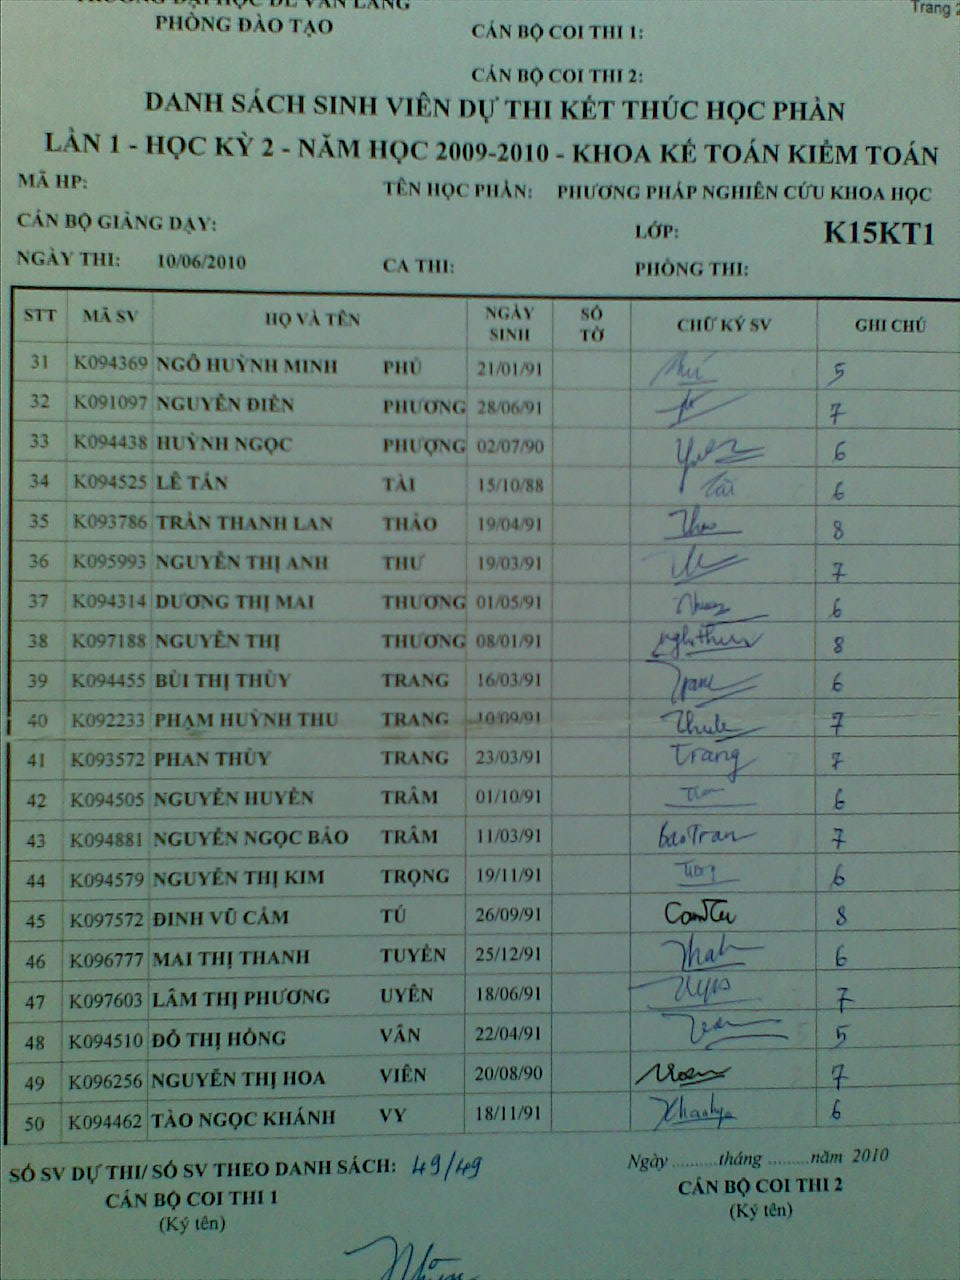 TRƯỜNG ĐẠI HỌC DL VĂN LANG
Trang 2
PHÒNG ĐÀO TẠO
CÁN BỘ COI THI 1:
CÁN BỘ COI THI 2:
DANH SÁCH SINH VIÊN DỰ THI KẾT THÚC HỌC PHẦN
LẦN 1 - HỌC KỲ 2 - NĂM HỌC 2009-2010 - KHOA KẾ TOÁN KIỂM TOÁN
MÃ HP: TÊN HỌC PHẦN: PHƯƠNG PHÁP NGHIÊN CỨU KHOA HỌC
CÁN BỘ GIẢNG DẠY: LỚP: K15KT1
NGÀY THI: 10/06/2010 CA THI: PHÒNG THI:
STT MÃ SV HỌ VÀ TÊN NGÀY SINH SỐ TỜ CHỮ KÝ SV GHI CHÚ
31 K094369 NGÔ HUỲNH MINH PHÚ 21/01/91 5
32 K091097 NGUYỄN ĐIỀN PHƯƠNG 28/06/91 7
33 K094438 HUỲNH NGỌC PHƯỢNG 02/07/90 6
34 K094525 LÊ TẤN TÀI 15/10/88 Tài 6
35 K093786 TRẦN THANH LAN THẢO 19/04/91 Thao 8
36 K095993 NGUYỄN THỊ ANH THƯ 19/03/91 7
37 K094314 DƯƠNG THỊ MAI THƯƠNG 01/05/91 6
38 K097188 NGUYỄN THỊ THƯƠNG 08/01/91 8
39 K094455 BÙI THỊ THÙY TRANG 16/03/91 6
40 K092233 PHẠM HUỲNH THU TRANG 10/09/91 7
41 K093572 PHAN THÙY TRANG 23/03/91 Trang 7
42 K094505 NGUYỄN HUYỀN TRÂM 01/10/91 6
43 K094881 NGUYỄN NGỌC BẢO TRÂM 11/03/91 baoTram 7
44 K094579 NGUYỄN THỊ KIM TRỌNG 19/11/91 6
45 K097572 ĐINH VŨ CẨM TÚ 26/09/91 CamTu 8
46 K096777 MAI THỊ THANH TUYỀN 25/12/91 6
47 K097603 LÂM THỊ PHƯƠNG UYÊN 18/06/91 7
48 K094510 ĐỖ THỊ HỒNG VÂN 22/04/91 5
49 K096256 NGUYỄN THỊ HOA VIÊN 20/08/90 7
50 K094462 TÀO NGỌC KHÁNH VY 18/11/91 6
SỐ SV DỰ THI/ SỐ SV THEO DANH SÁCH: 49/49
Ngày ..........tháng .........năm 2010
CÁN BỘ COI THI 1
CÁN BỘ COI THI 2
(Ký tên)
(Ký tên)